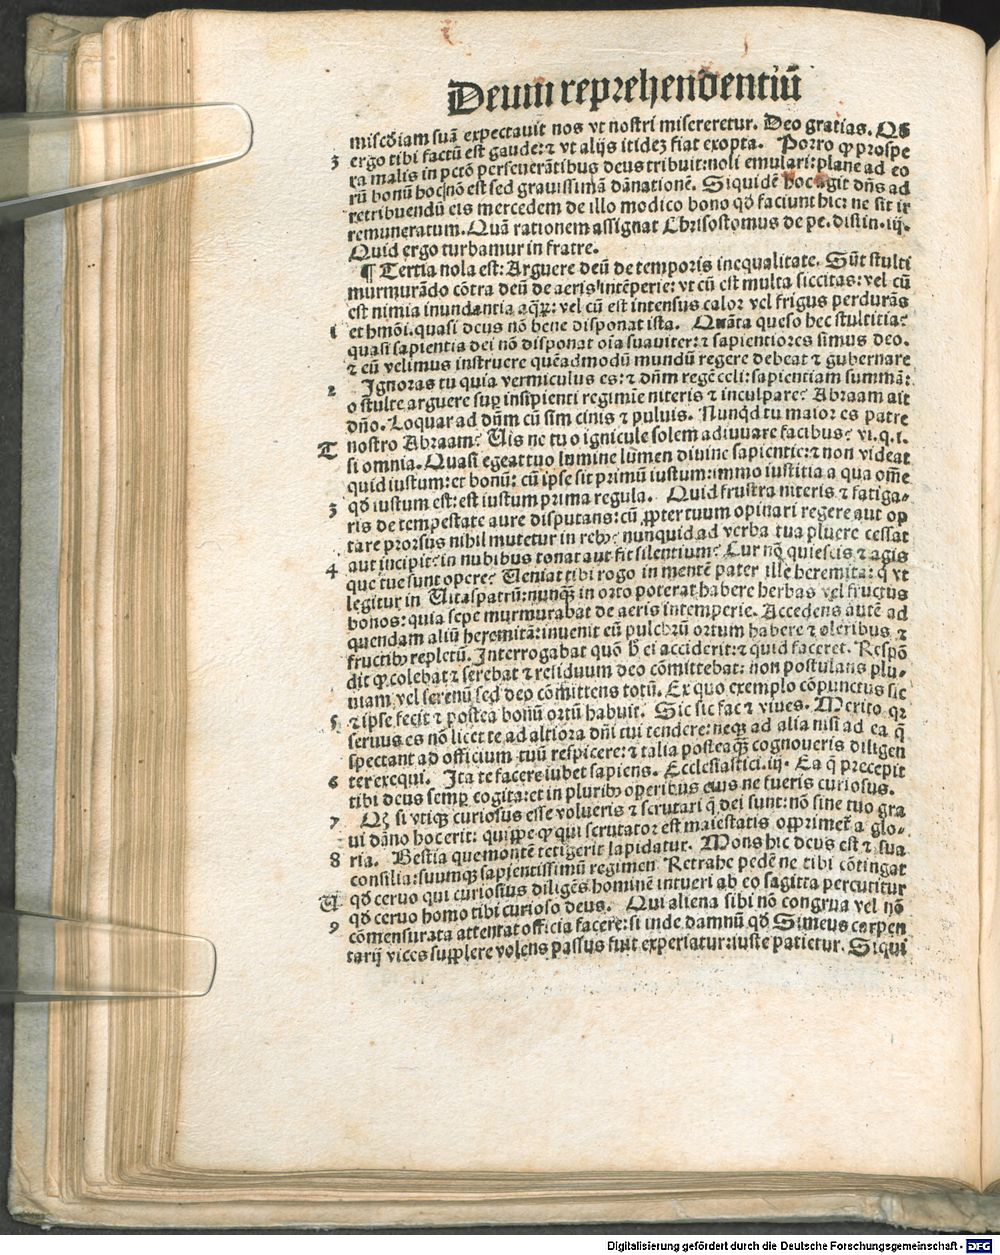 Deum reprehendentiū
miscd̄iam suā expectauit nos vt nostri misereretur. Deo gratias. Qꝫ
ergo tibi factū est gaude: ⁊ vt alijs itideꝫ fiat exopta. Porro ꝙ prospe
3
ra malis in pctō perseuerātibus deus tribuit: noli emulari: plane ad eo
rū bonū hoc nō est sed grauissimā dānationē. Siquidē hoc agit dn̄s ad
retribuendū eis mercedem de illo modico bono qd̄ faciunt hic: ne sit ir
remuneratum. Quā rationem assignat Chrisostomus de pe. distin. iij.
Quid ergo turbamur in fratre.
¶ Tertia nola est: Arguere deū de temporis inequalitate. Sūt stulti
murmurādo cōtra deū de aeris intēperie: vt cū est multa siccitas: vel cū
est nimia inundantia aqꝝ: vel cū est intensus calor vel frigus perdurās
1 et hmōi. quasi deus nō bene disponat ista. Quāta queso hec stultitia?
quasi sapientia dei nō disponat oīa suauiter: ⁊ sapientiores simus deo.
⁊ eū velimus instruere quēadmodū mundū regere debeat ⁊ gubernare
2 Ignoras tu quia vermiculus es: ⁊ dn̄m regē celi: sapientiam summā:
o stulte arguere suꝑ insipienti regimīe niteris ⁊ inculpare? Abraam ait
dn̄o. Loquar ad dn̄m cū sim cinis ⁊ puluis. Nunqd tu maior es patre
T nostro Abraam? Uis ne tu o ignicule solem adiuuare facibus? vi. q. i.
si omnia. Quasi egeat tuo lumine lumen diuine sapientie: ⁊ non videat
quid iustum: et bonū: cū ipse sit primū iustum: immo iustitia a qua om̄e
3 qd̄ iustum est: est iustum prima regula. Quid frustra niteris ⁊ fatiga-
ris de tempestate aure disputans: cū ꝓpter tuum opinari regere aut op
tare prorsus nihil mutetur in rebꝰ? nunquid ad verba tua pluere cessat
aut incipit? in nubibus tonat aut fit silentium? Cur nō quiescis ⁊ agis
4 que tue sunt opere? Ueniat tibi rogo in mentē pater ille heremita: q̄ vt
legitur in Uitaspatrū: nunqꝫ in orto poterat habere herbas vel fructus
bonos: quia sepe murmurabat de aeris intemperie. Accedens autē ad
quendam aliū heremitā: inuenit eū pulchrū ortum habere ⁊ oleribus ⁊
fructibꝰ repletū. Interrogabat quō h̄ ei acciderit: ⁊ quid faceret. Respō
dit ꝙ colebat ⁊ serebat ⁊ residuum deo cōmittebat: non postulans plu-
uiam vel serenū sed deo cōmittens totū. Ex quo exemplo cōpunctus sic
5 ⁊ ipse fecit ⁊ postea bonū ortū habuit. Sic sic fac ⁊ viues. Merito qꝛ
seruus es nō licet te ad altiora dn̄i tui tendere: neqꝫ ad alia nisi ad ea q̄
spectant ad officium tuū respicere: ⁊ talia posteaqꝫ cognoueris diligen
6 ter exequi. Ita te facere iubet sapiens. Ecclesiastici. iij. Ea q̄ precepit
tibi deus semꝑ cogita: et in pluribꝰ operibus eius ne fueris curiosus.
7 Qꝫ si vtiqꝫ curiosus esse volueris ⁊ scrutari q̄ dei sunt: nō sine tuo gra
ui dāno hoc erit: quippe ꝙ qui scrutator est maiestatis opprimet̄ a glo-
8 ria. Bestia que montē tetigerit lapidatur. Mons hic deus est ⁊ sua
consilia: suumqꝫ sapientissimū regimen Retrahe pedē ne tibi cōtingat
qd̄ ceruo qui curiosius diligēs hominē intueri ab eo sagitta percutitur
U qd̄ ceruo homo tibi curioso deus. Qui aliena sibi nō congrua vel nō
9 cōmensurata attentat officia facere: si inde damnū qd̄ Simeus carpen
tarij vices supplere volens passus fuit experiatur: iuste patietur. Siqui
Digitalisierung gefördert durch die Deutsche Forschungsgemeinschaft - DFG